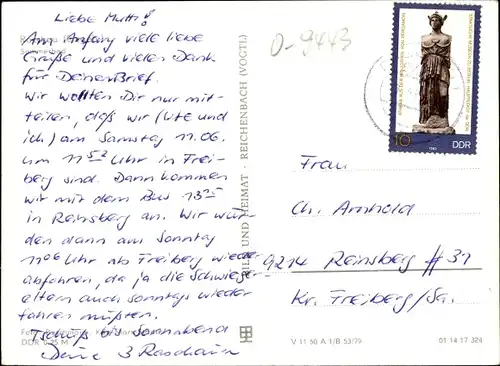 Liebe Mutti!
Am Anfang viele liebe
Grüße und vielen Dank
für Deinen Brief.
Wir wollten Dir nur mit-
teilen, daß wir (Ute und
ich) am Samstag 11.06.
um 11 52 Uhr in Frei-
berg sind. Dann kommen
wir mit dem Bus 13 25
in Reinsberg an. Wir wür-
den dann am Sonntag
11 06 Uhr ab Freiberg wieder
abfahren, da ja die Schwieger-
eltern auch sonntags wieder
fahren müßten.
Tschüß bis Sonnabend
Deine 3
DDR 0,25 M
BILD UND HEIMAT · REICHENBACH (VOGTL)
0-9443
10
DDR
Frau
Ch. Arnhold
9214 Reinsberg # 31
Kr. Freiberg/Sa.
V 11 50 A 1/B 53/79
01 14 17 324